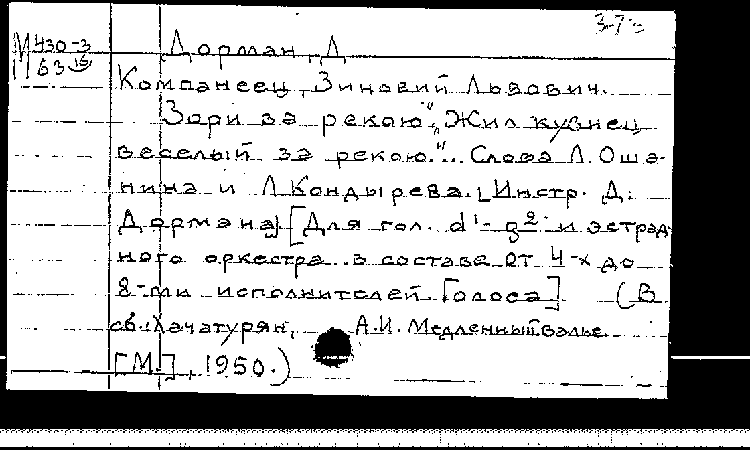 3-7
М 430-3 Дорман, Д
63
Компанеец, Зиновий Львович.
Зори за рекою. "Жил кузнец
веселый за рекою."... Слова Л. Оша-
нина и Л. Кондырева. [Инстр. Д.
Дормана] [Для гол. d¹-g² и эстрад-
ного оркестра в составе от 4-х до
8-ми исполнителей. Голоса] (В
сб.: Хачатурян, А.И. Медленный вальс.
[М.], 1950.)